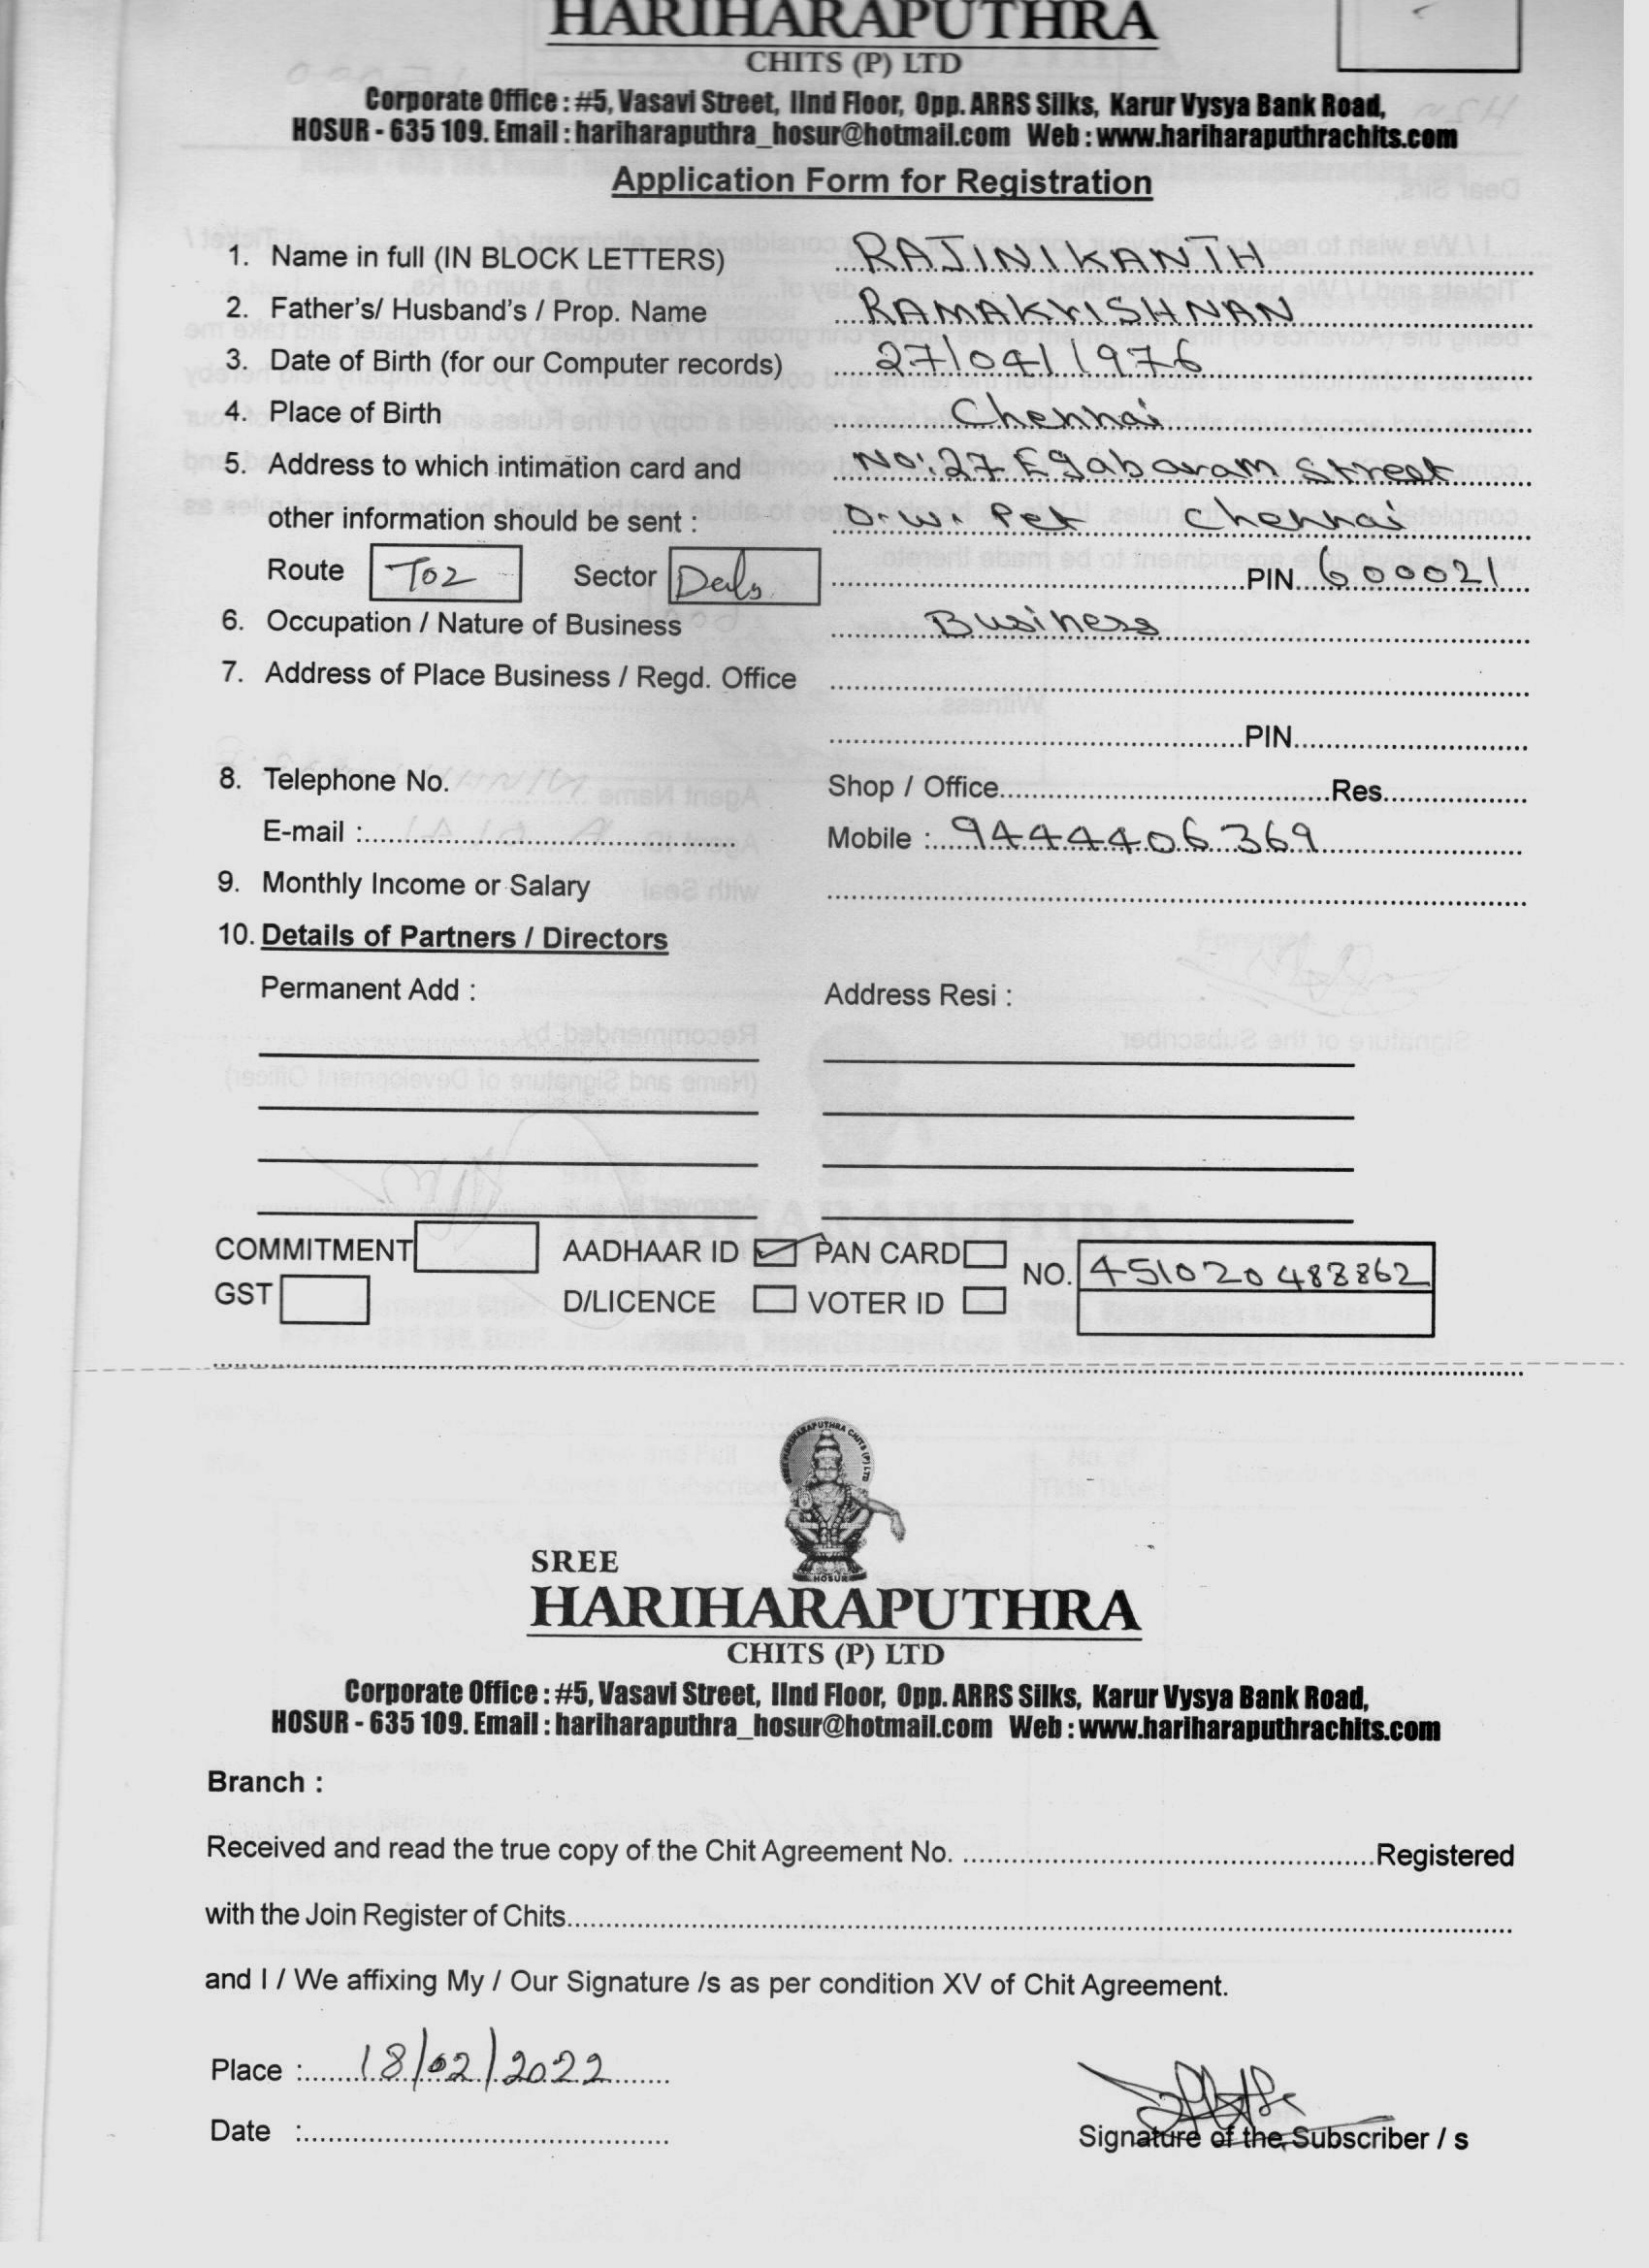 HARIHARAPUTHRA
CHITS (P) LTD
Corporate Office : #5, Vasavi Street, IInd Floor, Opp. ARRS Silks, Karur Vysya Bank Road,
HOSUR - 635 109. Email : hariharaputhra_hosur@hotmail.com Web : www.hariharaputhrachits.com
Application Form for Registration
1. Name in full (IN BLOCK LETTERS) RAJINIKANTH
2. Father's/ Husband's / Prop. Name RAMAKRISHNAN
3. Date of Birth (for our Computer records) 27/04/1976
4. Place of Birth Chennai
5. Address to which intimation card and No:27 Egabaram Street
other information should be sent : O.W. Pet Chennai
Route T02 Sector PIN 600021
6. Occupation / Nature of Business Business
7. Address of Place Business / Regd. Office
PIN
8. Telephone No. Shop / Office Res.
E-mail : Mobile : 9444406369
9. Monthly Income or Salary
10. Details of Partners / Directors
Permanent Add : Address Resi :
COMMITMENT AADHAAR ID PAN CARD NO. 451020488862
GST D/LICENCE VOTER ID
SREE HARIHARAPUTHRA CHITS (P) LTD
HOSUR
SREE
HARIHARAPUTHRA
CHITS (P) LTD
Corporate Office : #5, Vasavi Street, IInd Floor, Opp. ARRS Silks, Karur Vysya Bank Road,
HOSUR - 635 109. Email : hariharaputhra_hosur@hotmail.com Web : www.hariharaputhrachits.com
Branch :
Received and read the true copy of the Chit Agreement No. Registered
with the Join Register of Chits
and I / We affixing My / Our Signature /s as per condition XV of Chit Agreement.
Place : 18/02/2022
Date :
Signature of the Subscriber / s